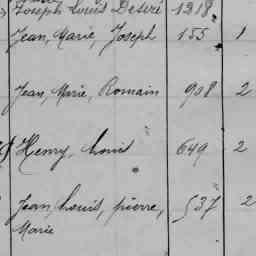 Joseph Louis Desiré 1218
Jean, Marie, Joseph 155 1
Jean, Marie, Romain 908 2
Henry, Louis 649 2
Jean, Louis, pierre, 537 2
Marie